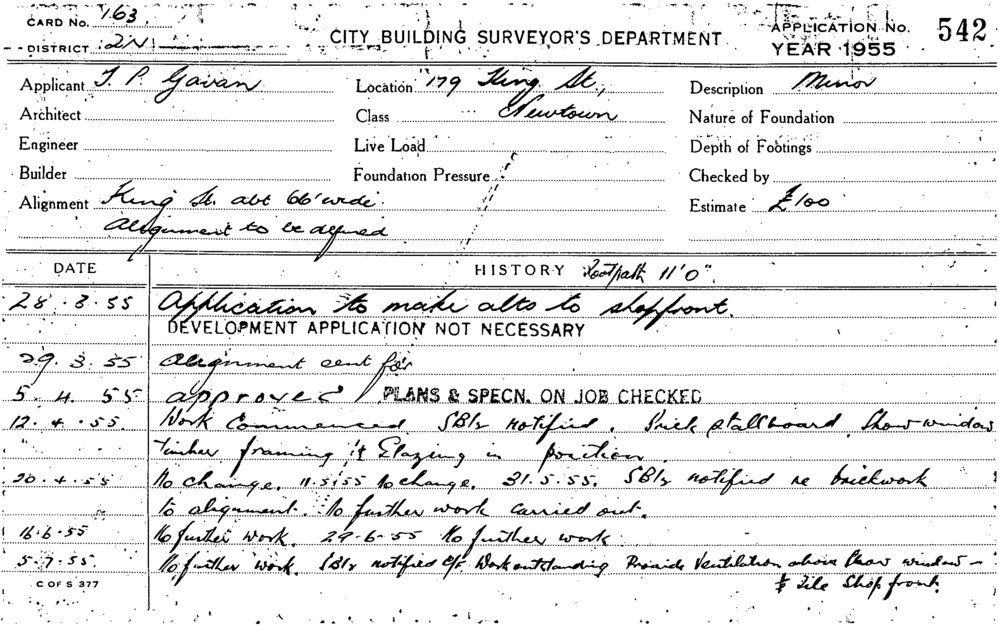 CARD No. 163
DISTRICT 2N
CITY BUILDING SURVEYOR'S DEPARTMENT
APPLICATION No. 542
YEAR 1955
Applicant T. P. Gavan
Location 179 King St.,
Description Minor
Architect
Class Newtown
Nature of Foundation
Engineer
Live Load
Depth of Footings
Builder
Foundation Pressure
Checked by
Alignment King St. abt 66' wide
Estimate £100
alignment to be defined
DATE
HISTORY Footpath 11'0"
28.3.55 Application to make alts to shopfront.
DEVELOPMENT APPLICATION NOT NECESSARY
29.3.55 Alignment sent for
5.4.55 approved PLANS & SPECN. ON JOB CHECKED
12.4.55 Work Commenced. notified. Brick stallboard. Show window
Timber framing & Glazing in position.
20.4.55 No change. 11.5.55 No change. 31.5.55. notified re brickwork
to alignment. No further work carried out.
16.6.55 No further work. 29-6-55 No further work.
5.7.55 No further work. notified Work outstanding Provide Ventilation above Show window
& Tile Shop front.
C OF S 377